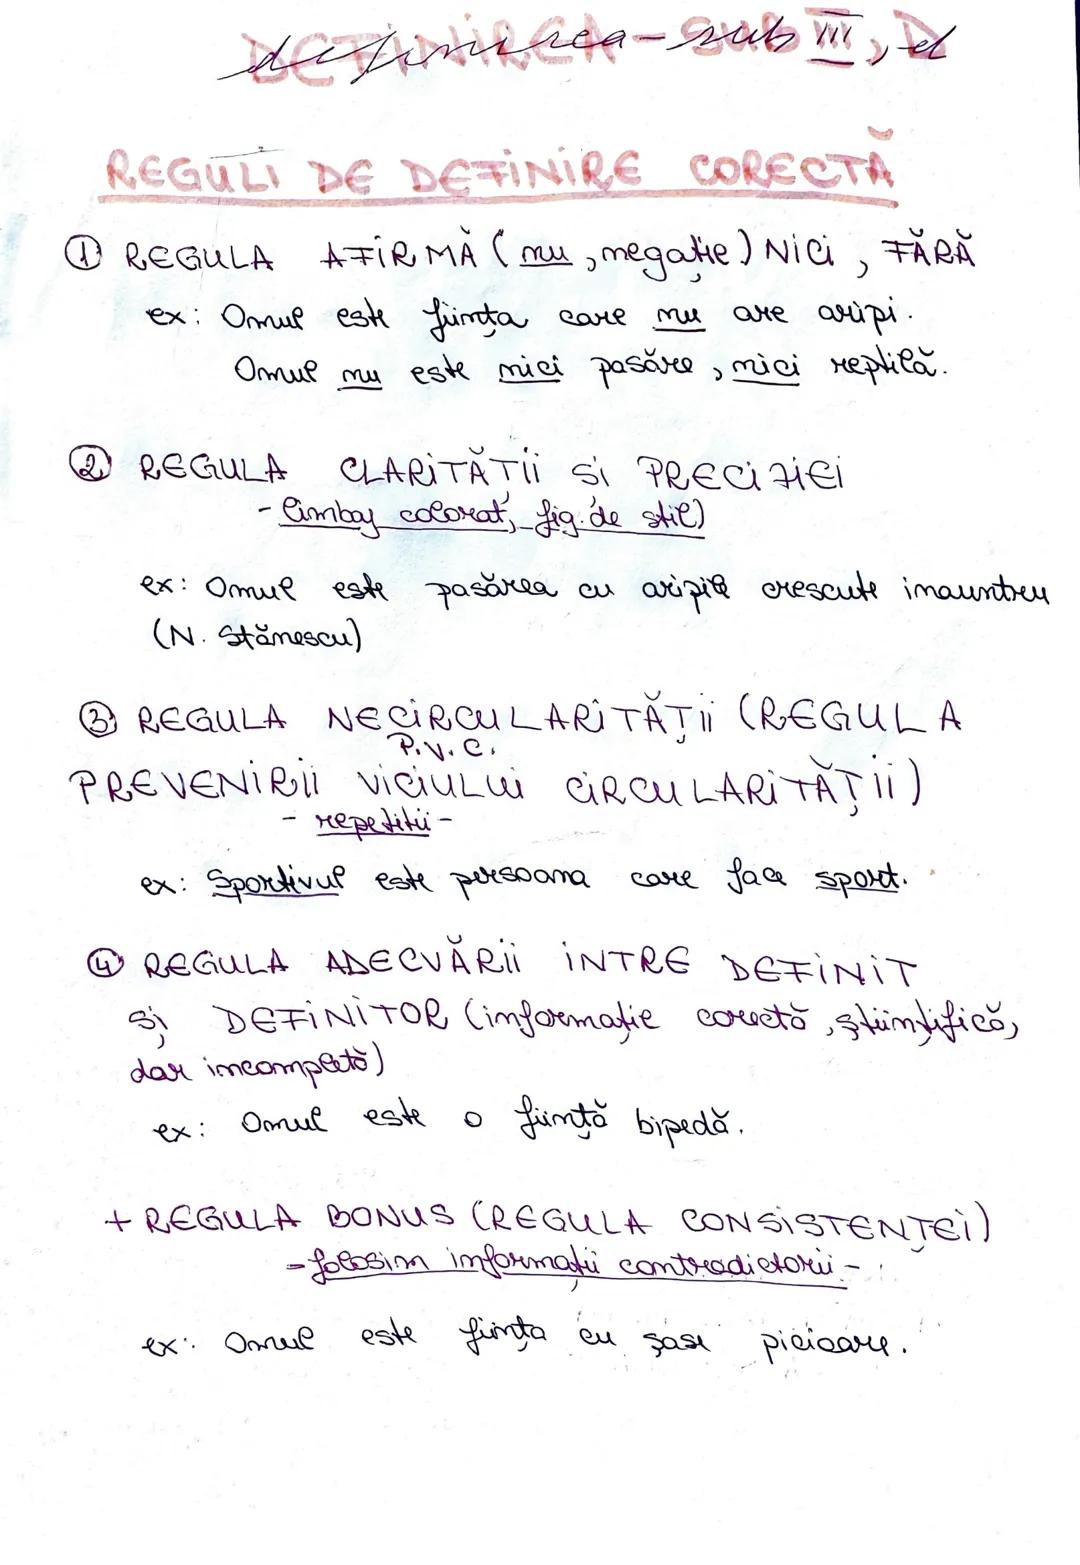 definirea - sub III, d
REGULI DE DEFINIRE CORECTĂ
① REGULA AFIRMĂ (nu, negație) NICI, FĂRĂ
ex: Omul este ființa care nu are aripi.
Omul nu este nici pasăre, nici reptilă.
② REGULA CLARITĂȚII SI PRECIZIEI
- limbaj colorat, fig. de stil)
ex: Omul este pasărea cu aripile crescute inauntru
(N. Stănescu)
③ REGULA NECIRCULARITĂȚII (REGULA
P.V.C.
PREVENIRII VICIULUI CIRCULARITĂȚII)
- repetiții -
ex: Sportivul este persoana care face sport.
④ REGULA ADECVĂRII INTRE DEFINIT
și DEFINITOR (informație corectă, științifică,
dar incompletă)
ex: Omul este o ființă bipedă.
+ REGULA BONUS (REGULA CONSISTENȚEI)
- folosim informații contradictorii -
ex: Omul este ființa cu șase picioare.